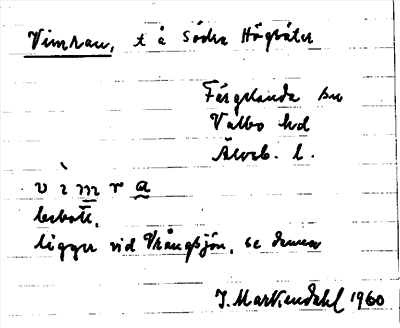 Vimran, t å Södra Högsäter
Färgelanda sn
Valbo hd
Älvsb. l.
v ì m r a
bebott.
ligger vid Vrångsjön, se denna
J. Markendahl 1960